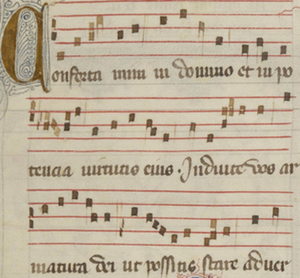 Conforta mini in domino et in po
tencia uirtutis eius. Induite uos ar
matura dei ut possitis stare aduer